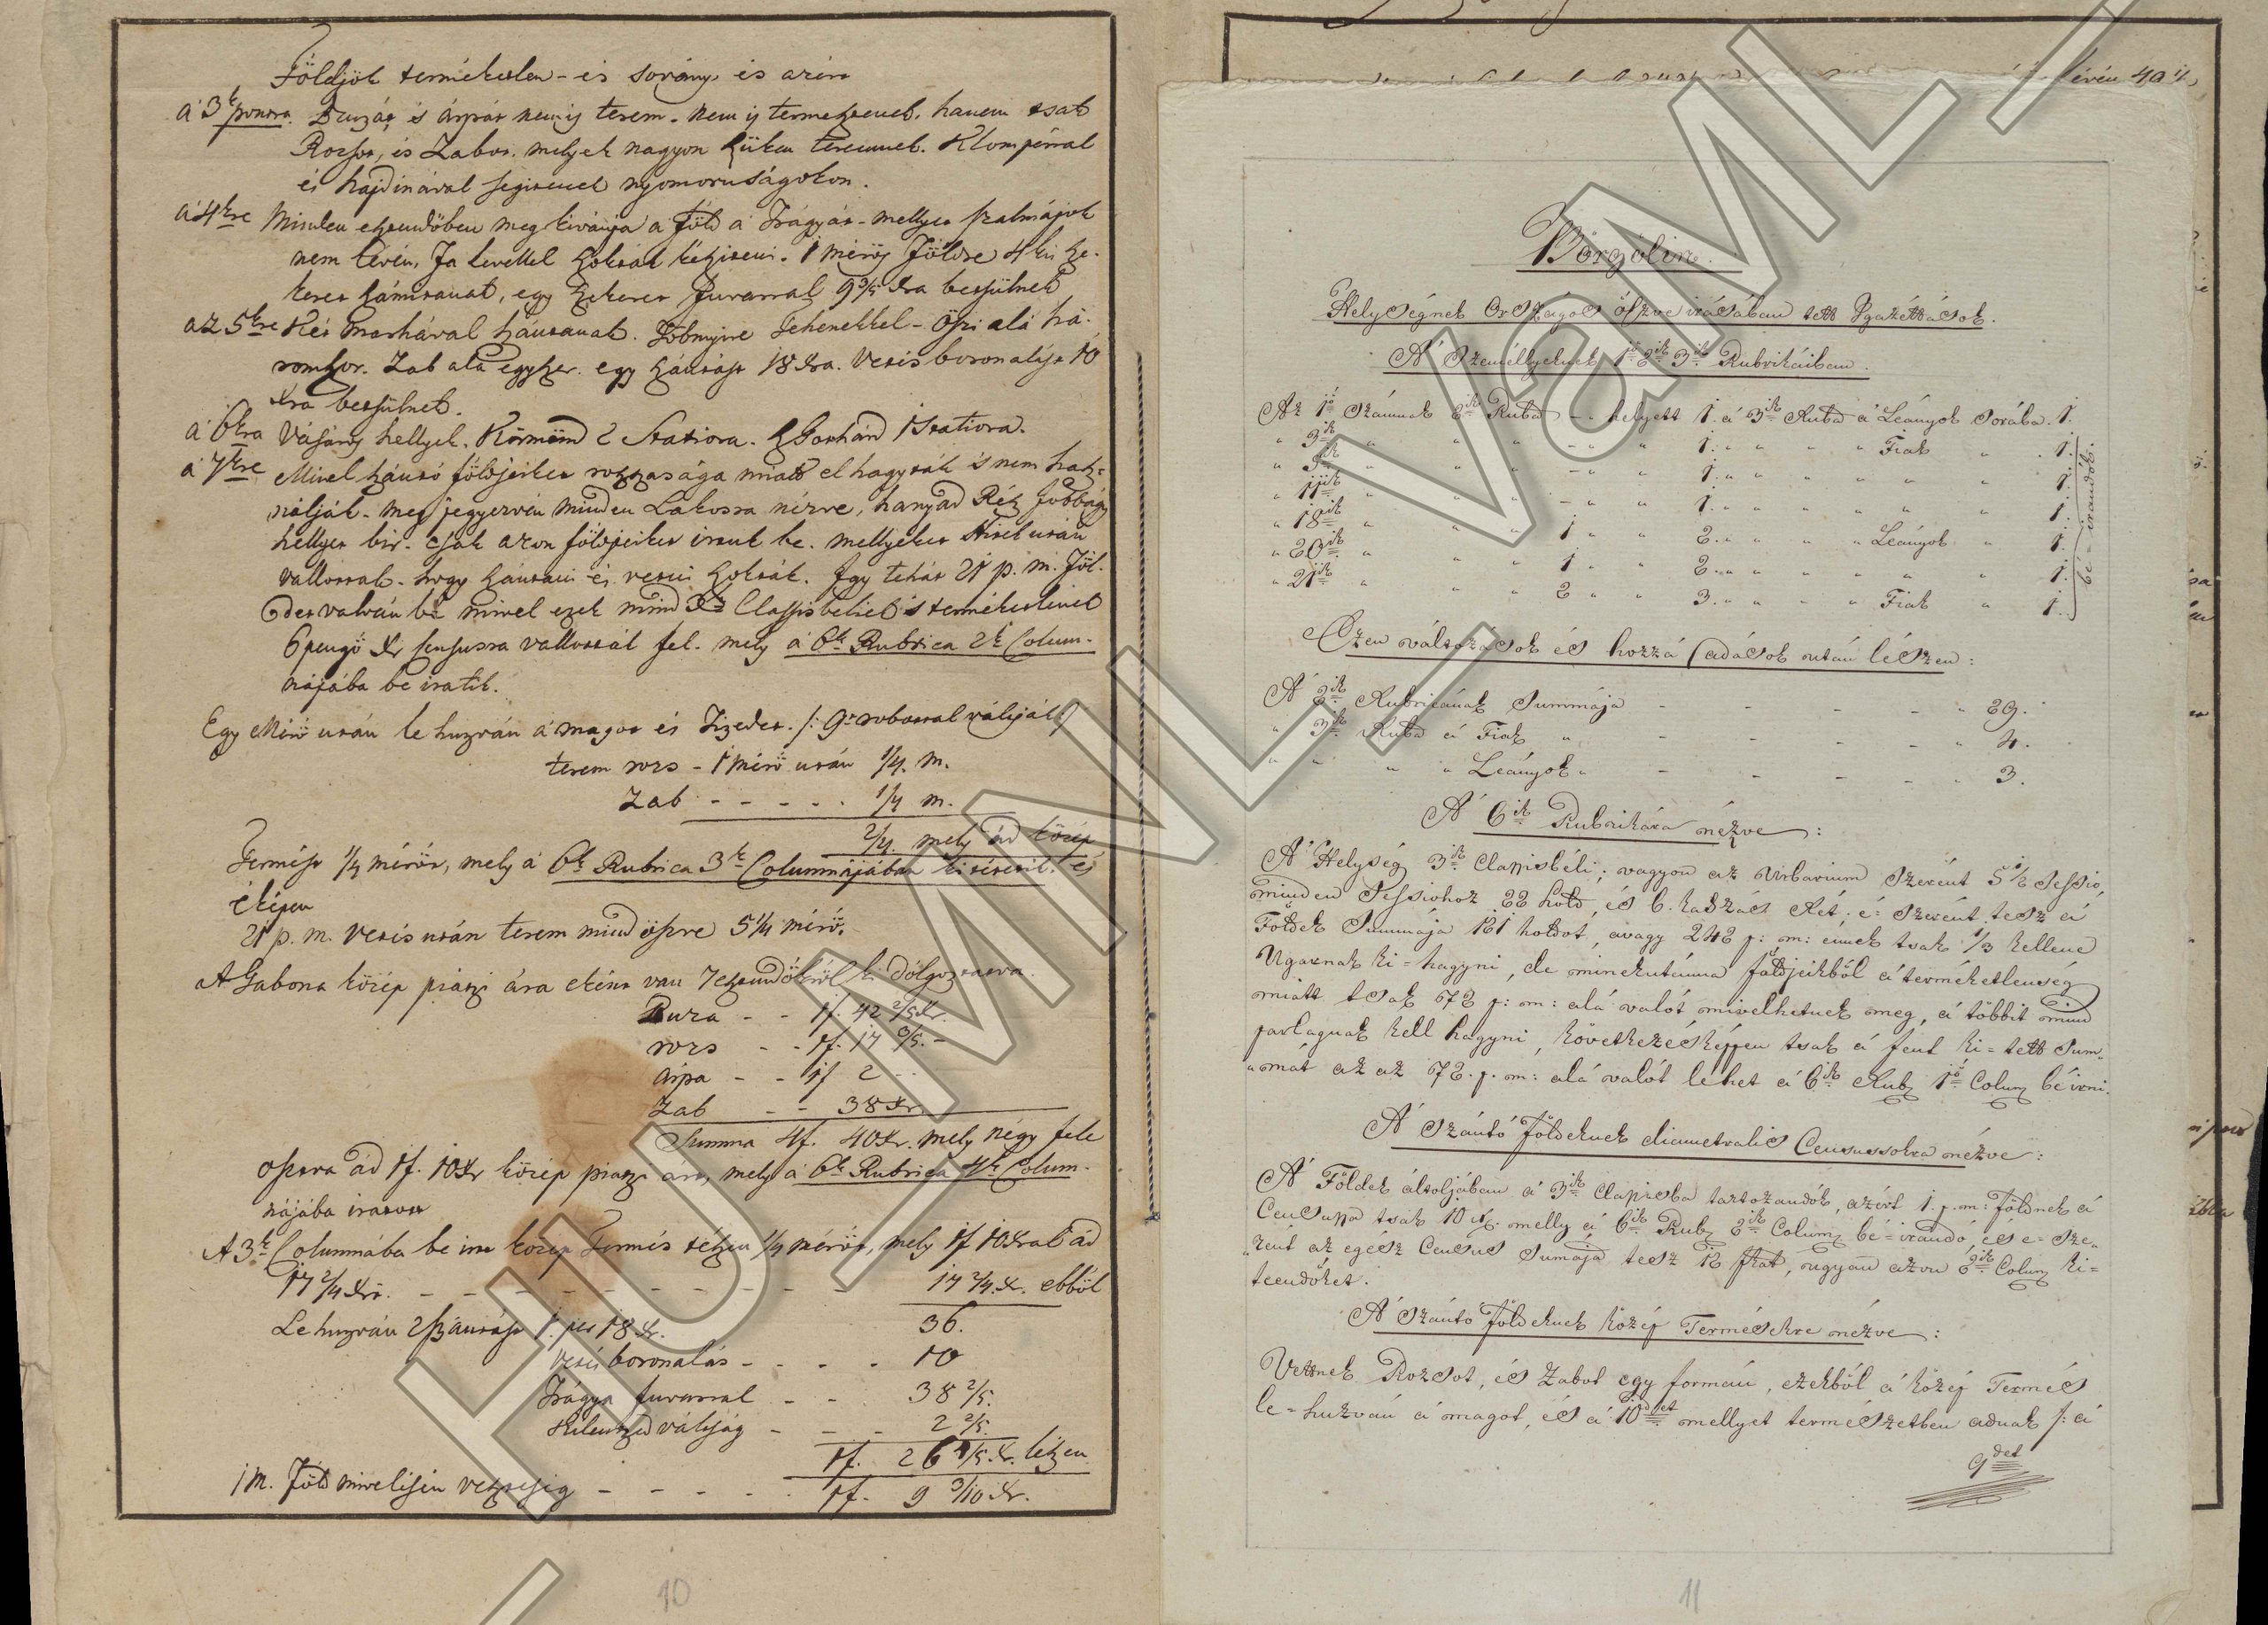 Földjök terméketlen - és sovány és azért
á 3k pontra Buzát és árpát nem is terem - nem is termesztenek, hanem tsak
Rozsot, és Zabot, melyek nagyon szüken teremnek. Klompérral
és hajdinával segitenek nyomoruságokon.
á 4kre Minden esztendőben meg kivánja a föld a Trágyát - mellyet szalmájok
nem lévén, fa levellel szokták készíteni. 1 mérős Földre 4 kis sze-
keret számítanak, egy szekeret fuvarral 9 3/5 xra betsülnek
az 5kre Két marhával szántanak. Többnyire Tehenekkel - Öszi alá há-
romszor. Zab alá egyszer. egy szántást 18 xra. Vetés boronalást 10
xra betsülnek.
á 6kra Vásáros hellyek. Körmend 2 Statiora. Sz Gothárd 1 Statiora.
á 7kre Mivel szántó földjeiket rosszasága miatt el hagyták és nem hasz-
nálják - meg jegyezvén minden Lakosra nézve, hanyad Rész Jobbágy
hellyet bir - csak azon földjeiket irtuk be. mellyeket Hitek után
vallottak - hogy szántani és vetni szokták. Igy tehát 21 p. m. Föl-
det valván bé mivel ezek mind 3k Classisbeliek és terméketlenek
6 pengő xr Censusra vallották fel. mely á 6k Rubrica 2k Colum-
nájába be iratik.
Egy Mérő után le huzván á magot és Tizedet. /: 9et robottal váltják :/
terem rozs - 1 mérő után 1/4. m.
Zab - - - - - 1/4 m.
2/4. mely ád közép
Termést 1/4 mérőt, mely á 6k Rubrica 3k Columnájában ki tétetik. és
eképen
21 p. m. vetés után terem mind öszve 5 1/4 mérő.
A Gabona közép piatzi ára eként van 7 esztendőkről ki dólgoztatva
Buza - - 1f. 42 2/5 xr.
rozs - - 1f. 17 3/5. -
árpa - - 1f 2 - -
Zab - - 38 xr
Summa 4f. 40 xr. mely négy fele
osztva ád 1f. 10 xr közép piatzi árat, mely á 6k Rubrica 4k Colum-
nájába iratott
A 3k Columnába be irt közép Termés tészen 1/4 mérőt, mely 1f 10 xral ád
17 2/4 xrt. - - - - - - - - 17 2/4. x. ebből
Le huzván 2 szántást 1. per 18 xr. 36.
vetés boronalás - - - - 10
Trágya fuvarral - - 38 2/5.
Kilentzed váltság - - - 2 2/5.
1f. 26 4/5. x. lészen
1 m. Föld mivelésén vesztesség - - - - - 1f. 9 3/10 xr.
10
lévén 40
Börgölin.
Helységnek Országos öszve irásában tett Igazéttások.
A' Személlyeknek 1ső 2ik 3ik Rubrikáiban.
Az 1ső Számnak 2ik Rubr - - helyett 1. á 3ik Rubr a' Leányok Sorába. 1.
" 3ik " " " - " " 1. " " " " Fiak " " 1.
" 5ik " " " - " " 1. " " " " " " 1.
" 11ik " " " - " " 1. " " " " " " 1.
" 18ik " " " 1 " " 2. " " " " Leányok " 1.
" 20ik " " " 1 " " 2. " " " " " " 1.
" 21ik " " " 2 " " 3. " " " " Fiak " 1.
bé - irandók.
Ezen változások és hozzá adások után lészen:
A' 2ik Rubrikának Summája - - - - " 29.
" 3ik Rubr á Fiak " - - - - " 4.
" " " " Leányok " - - - - " 3.
A' 6ik Rubrikára nézve:
A' Helység 3ik Classisbéli; vagyon az Urbarium Szerént 5 1/2 Sessio,
minden Sessiohoz 22 hold, és 6. kaszás Rét; é szerént tesz á
Földek Summája 121 holdot, avagy 242 p: m: ennek tsak 1/3 kellene
Ugarnak ki-hagyni, de minekutánna földjeikből á terméketlenség
miátt tsak 72 p: m: alá valót mivelhetnek meg, á többit mind
parlagnak kell hagyni, következésképpen tsak á fent ki-tett Sum-
mát az az 72. p. m: alá valót lehet á 6ik Rubr 1ső Colum bé irni.
A' Szántó Földeknek diametralis Censussokra nézve:
A' Földek általjában á 3ik Classisba tartozandók, azért 1. p. m: földnek á
Censussa tsak 10 xr. melly á 6ik Rubr 2ik Colum bé-irandó, és e-sze-
rént az egész Census Sumája tesz 12 fkat, ugyan azon 2ik Colum ki-
teendőket.
A' Szántó Földeknek közép Termésekre nézve:
Vetnek Rozsot, és Zabot egy formán, ezekből á közép Termés
le-huzván á magot, és á 10det mellyet természetben adnak /: á
9det
11